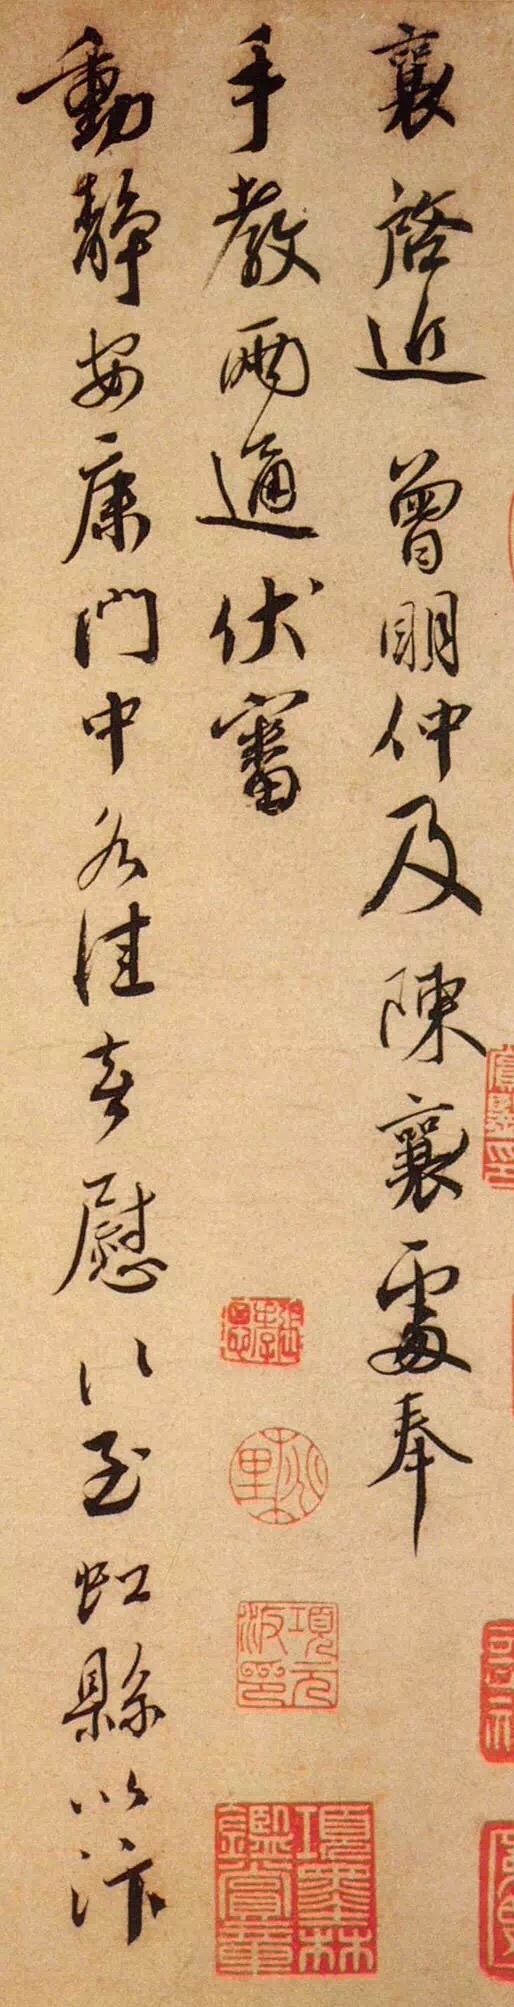 襄啓近曾明仲及陳襄處奉
手教兩通伏審
動靜安康門中各佳喜慰以至虹縣以汴
項元汴印
項墨林鑑賞章